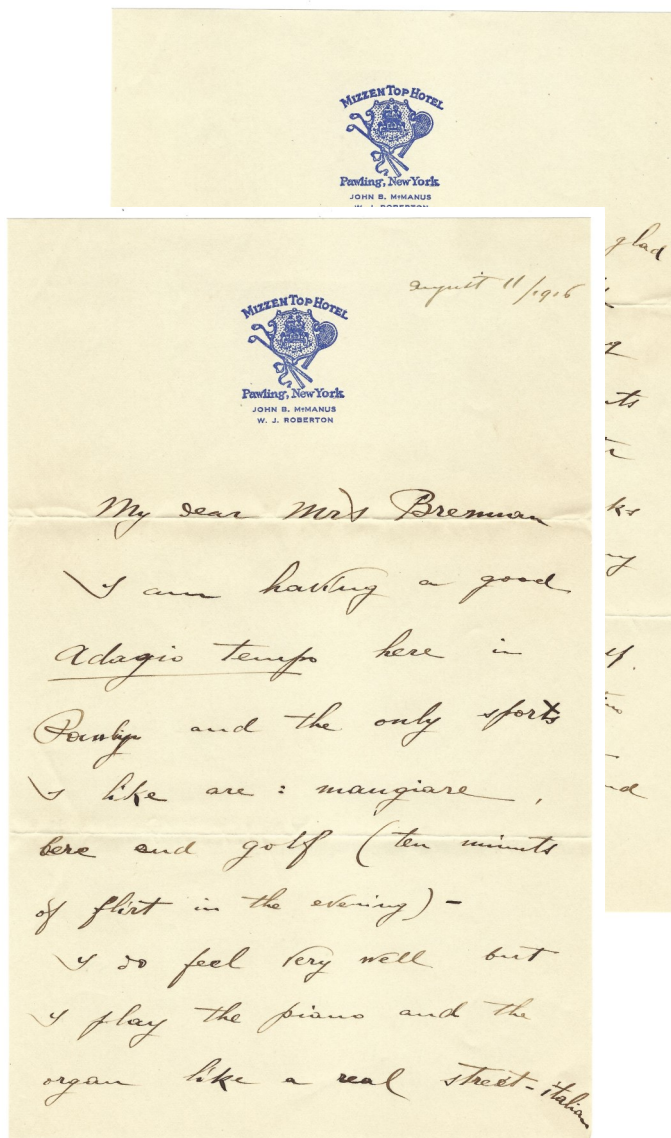 MIZZEN TOP HOTEL
Pawling, New York
JOHN B. McMANUS
W. J. ROBERTON
glad
ts
ks
nd
MIZZEN TOP HOTEL
Pawling, New York
JOHN B. McMANUS
W. J. ROBERTON
august 11/1916
My dear Mrs Brennan
I am having a good
adagio tempo here in
Pawling and the only sports
I like are : mangiare,
bere and golf (ten minuts
of flirt in the evening) -
I do feel very well but
I play the piano and the
organ like a real street-italian